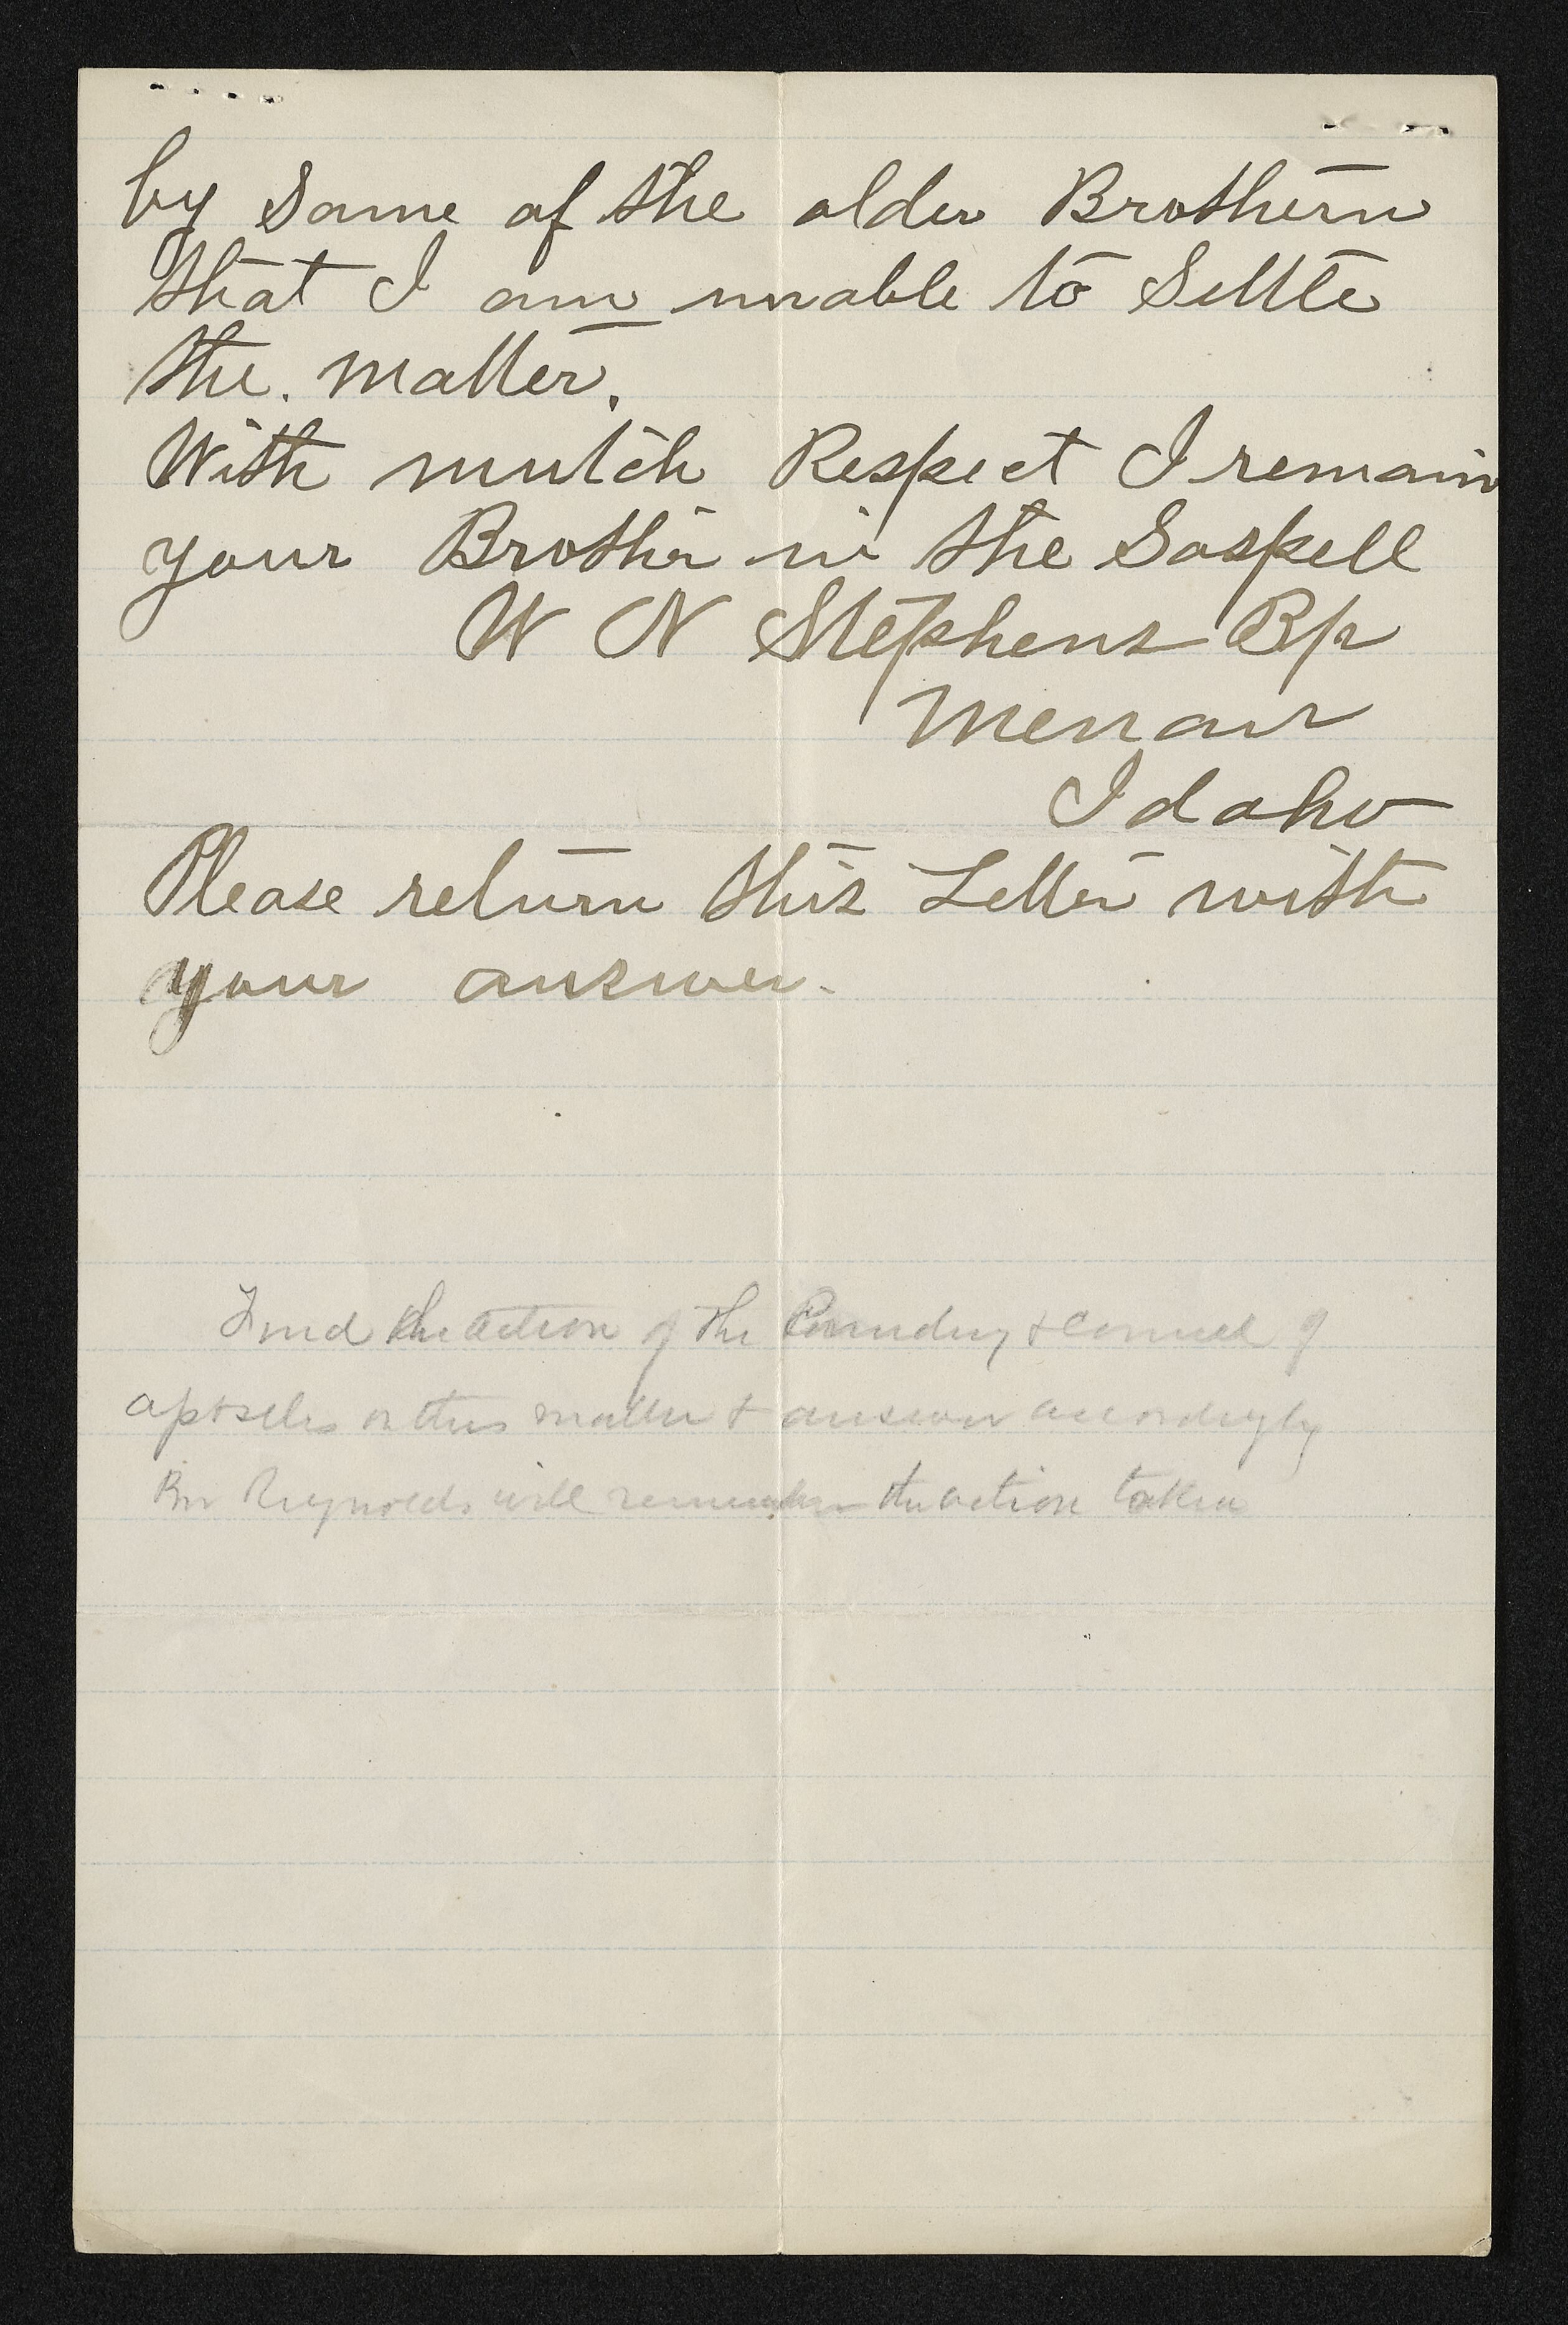 by Some of the older Brothern
that I am unable to Settle
the. matter.
With mutch Respect I remain
your Brother in the Gospell
W N Stephens Bp
Menan
Idaho
Please return this Letter with
your answer.
Find the action of the & Council of
apostles on this matter & answer accordingly
Bro Reynolds will remember the action taken